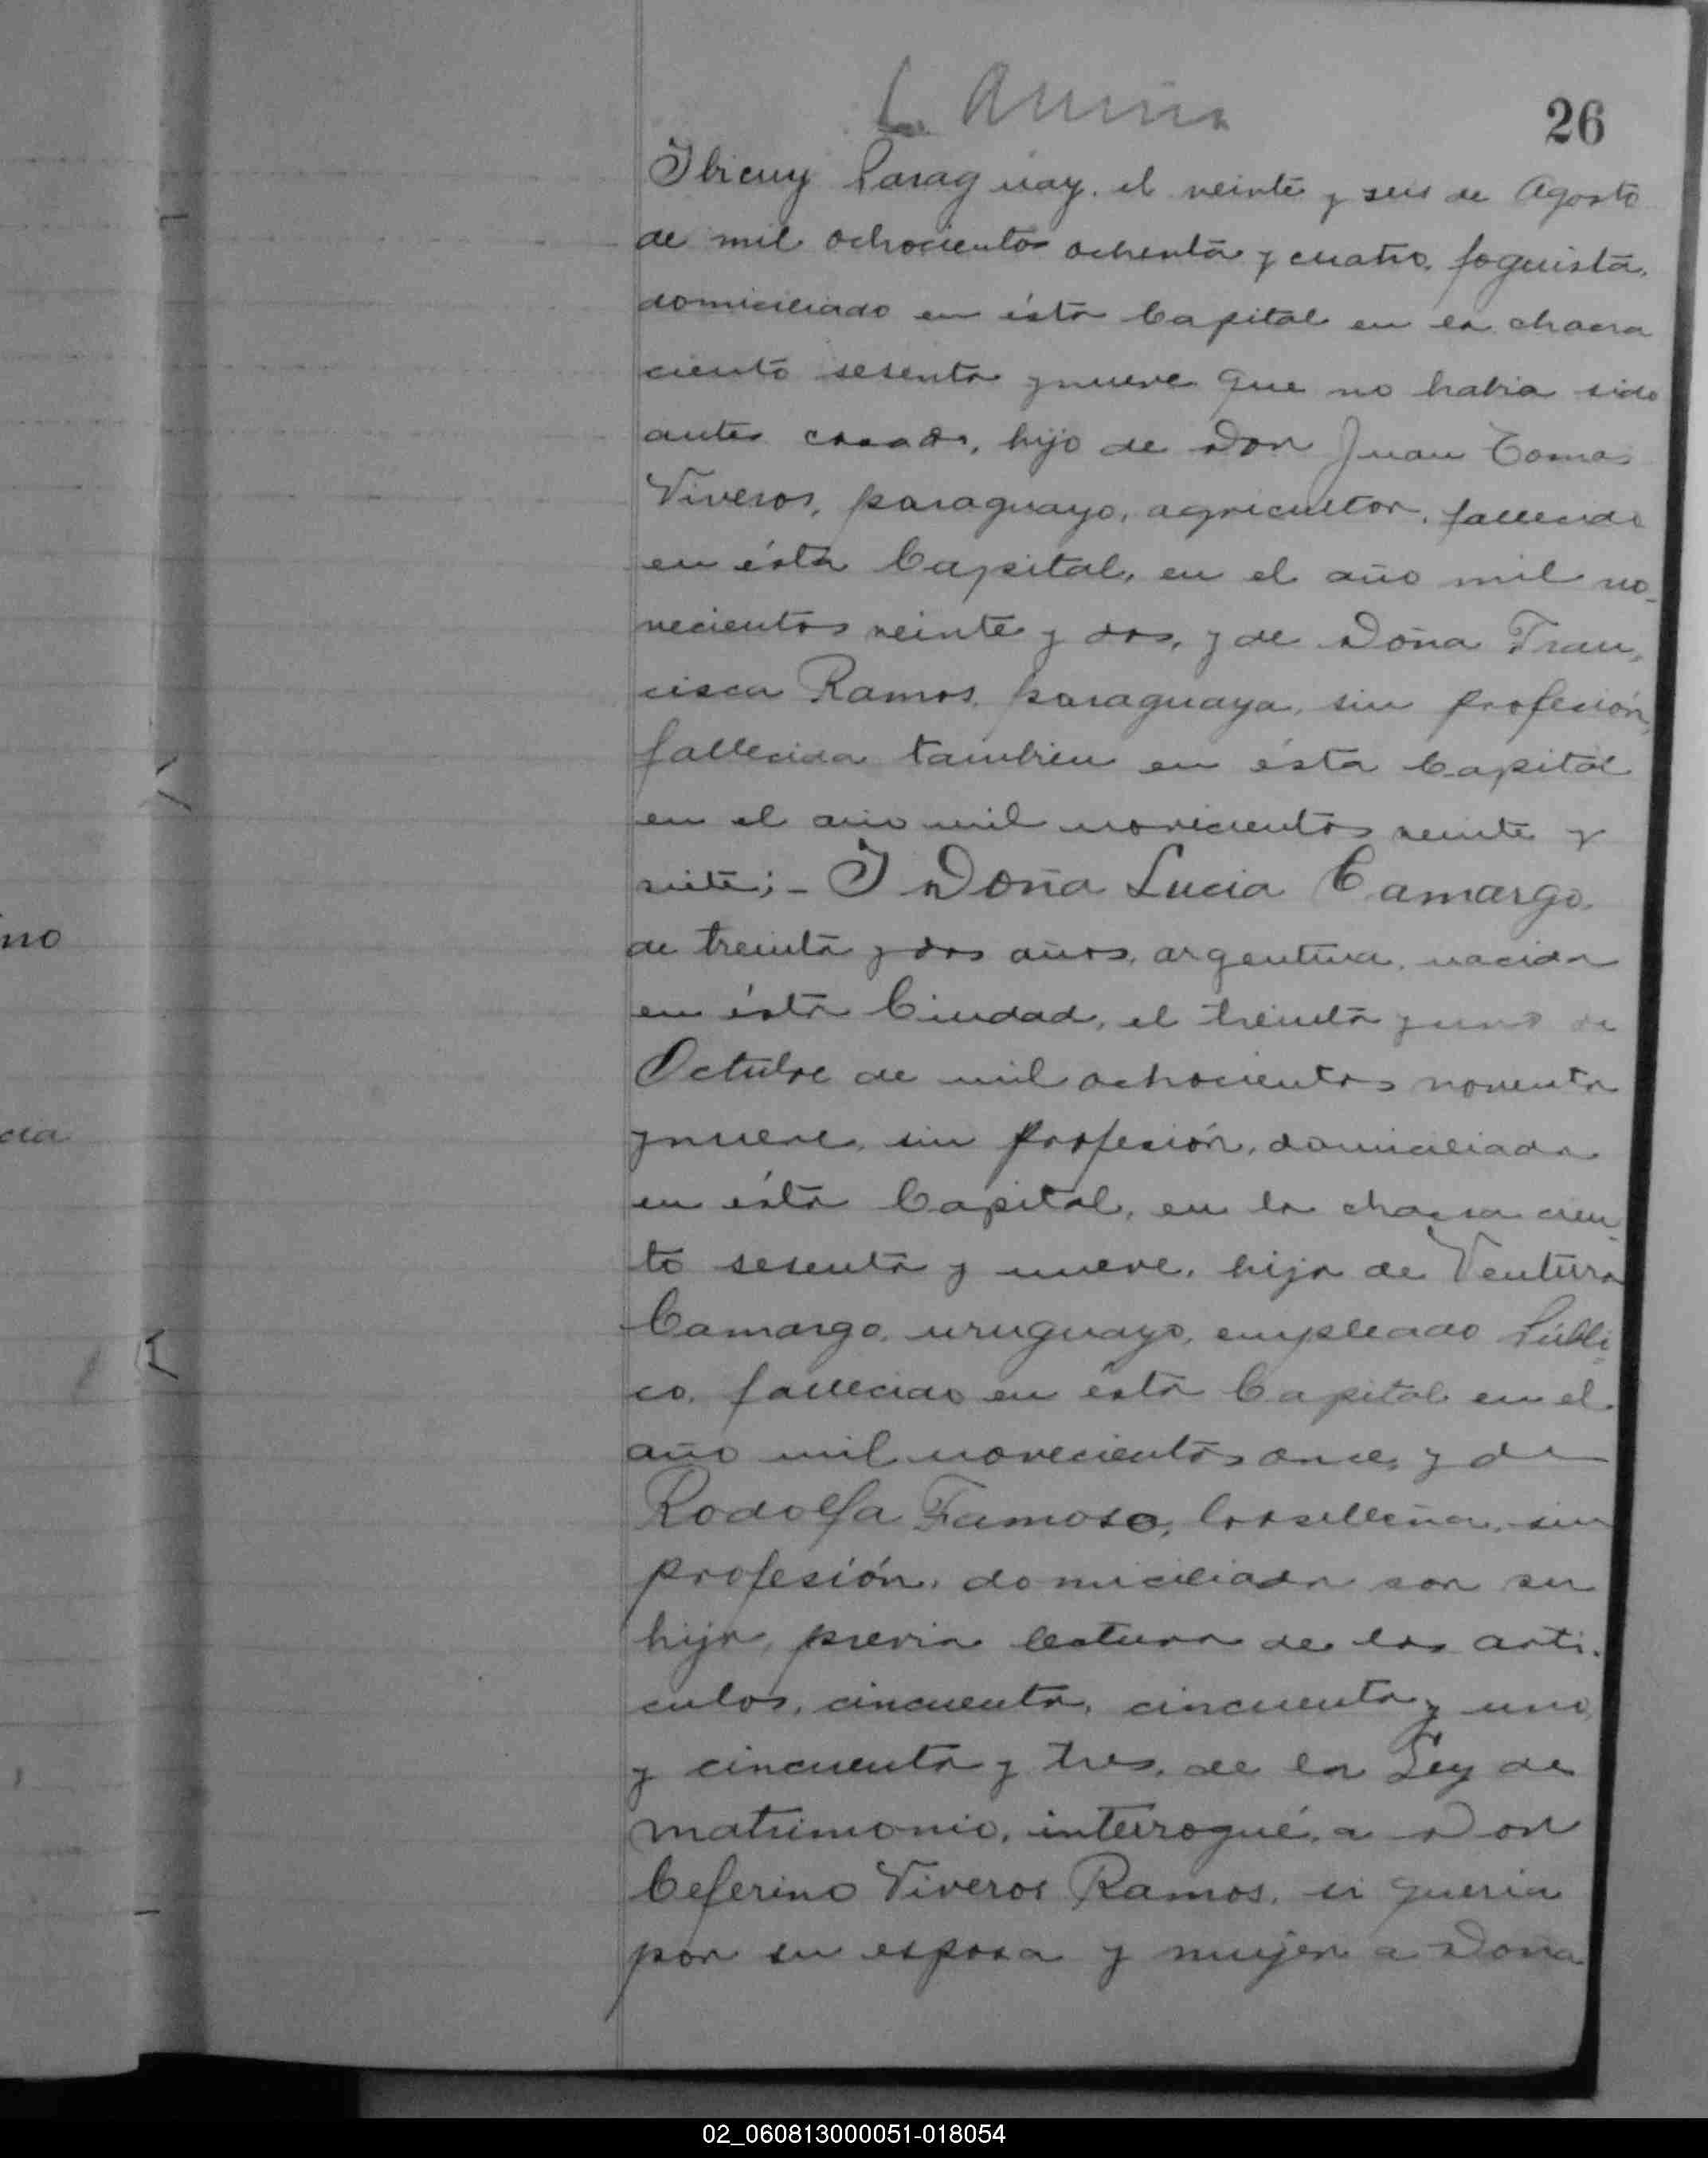 26
Ibicuy Paraguay, el veinte y seis de Agosto
de mil ochocientos ochenta y cuatro, foguista,
domiciliado en ésta Capital en la chacra
ciento sesenta y nueve que no habia sido
antes casado, hijo de Don Juan Tomas
Viveros, paraguayo, agricultor, fallecido
en ésta Capital, en el año mil no-
vecientos veinte y dos, y de Doña Fran-
cisca Ramos, paraguaya, sin profesión,
fallecida tambien en ésta Capital
en el año mil novecientos veinte y
siete; - Y Doña Lucia Camargo,
de treinta y dos años, argentina, nacida
en ésta Ciudad, el treinta y uno de
Octubre de mil ochocientos noventa
y nueve, sin profesión, domiciliada
en ésta Capital, en la chacra cien-
to sesenta y nueve, hija de Ventura
Camargo, uruguayo, empleado Públi-
co, fallecido en ésta Capital en el
año mil novecientos once, y de
Rodolfa Famoso, brasileña, sin
profesión, domiciliada con su
hija, previa lectura de los arti-
culos, cincuenta, cincuenta y uno,
y cincuenta y tres, de la Ley de
matrimonio, interrogué, a Don
Ceferino Viveros Ramos, si queria
por su esposa y mujer a Doña
no
cia
02_060813000051-018054